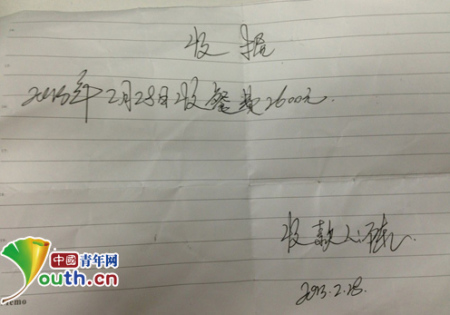 收据
2013年2月28日收餐款2600元.
收款人:
2013.2.28.
中國青年网
Youth.cn